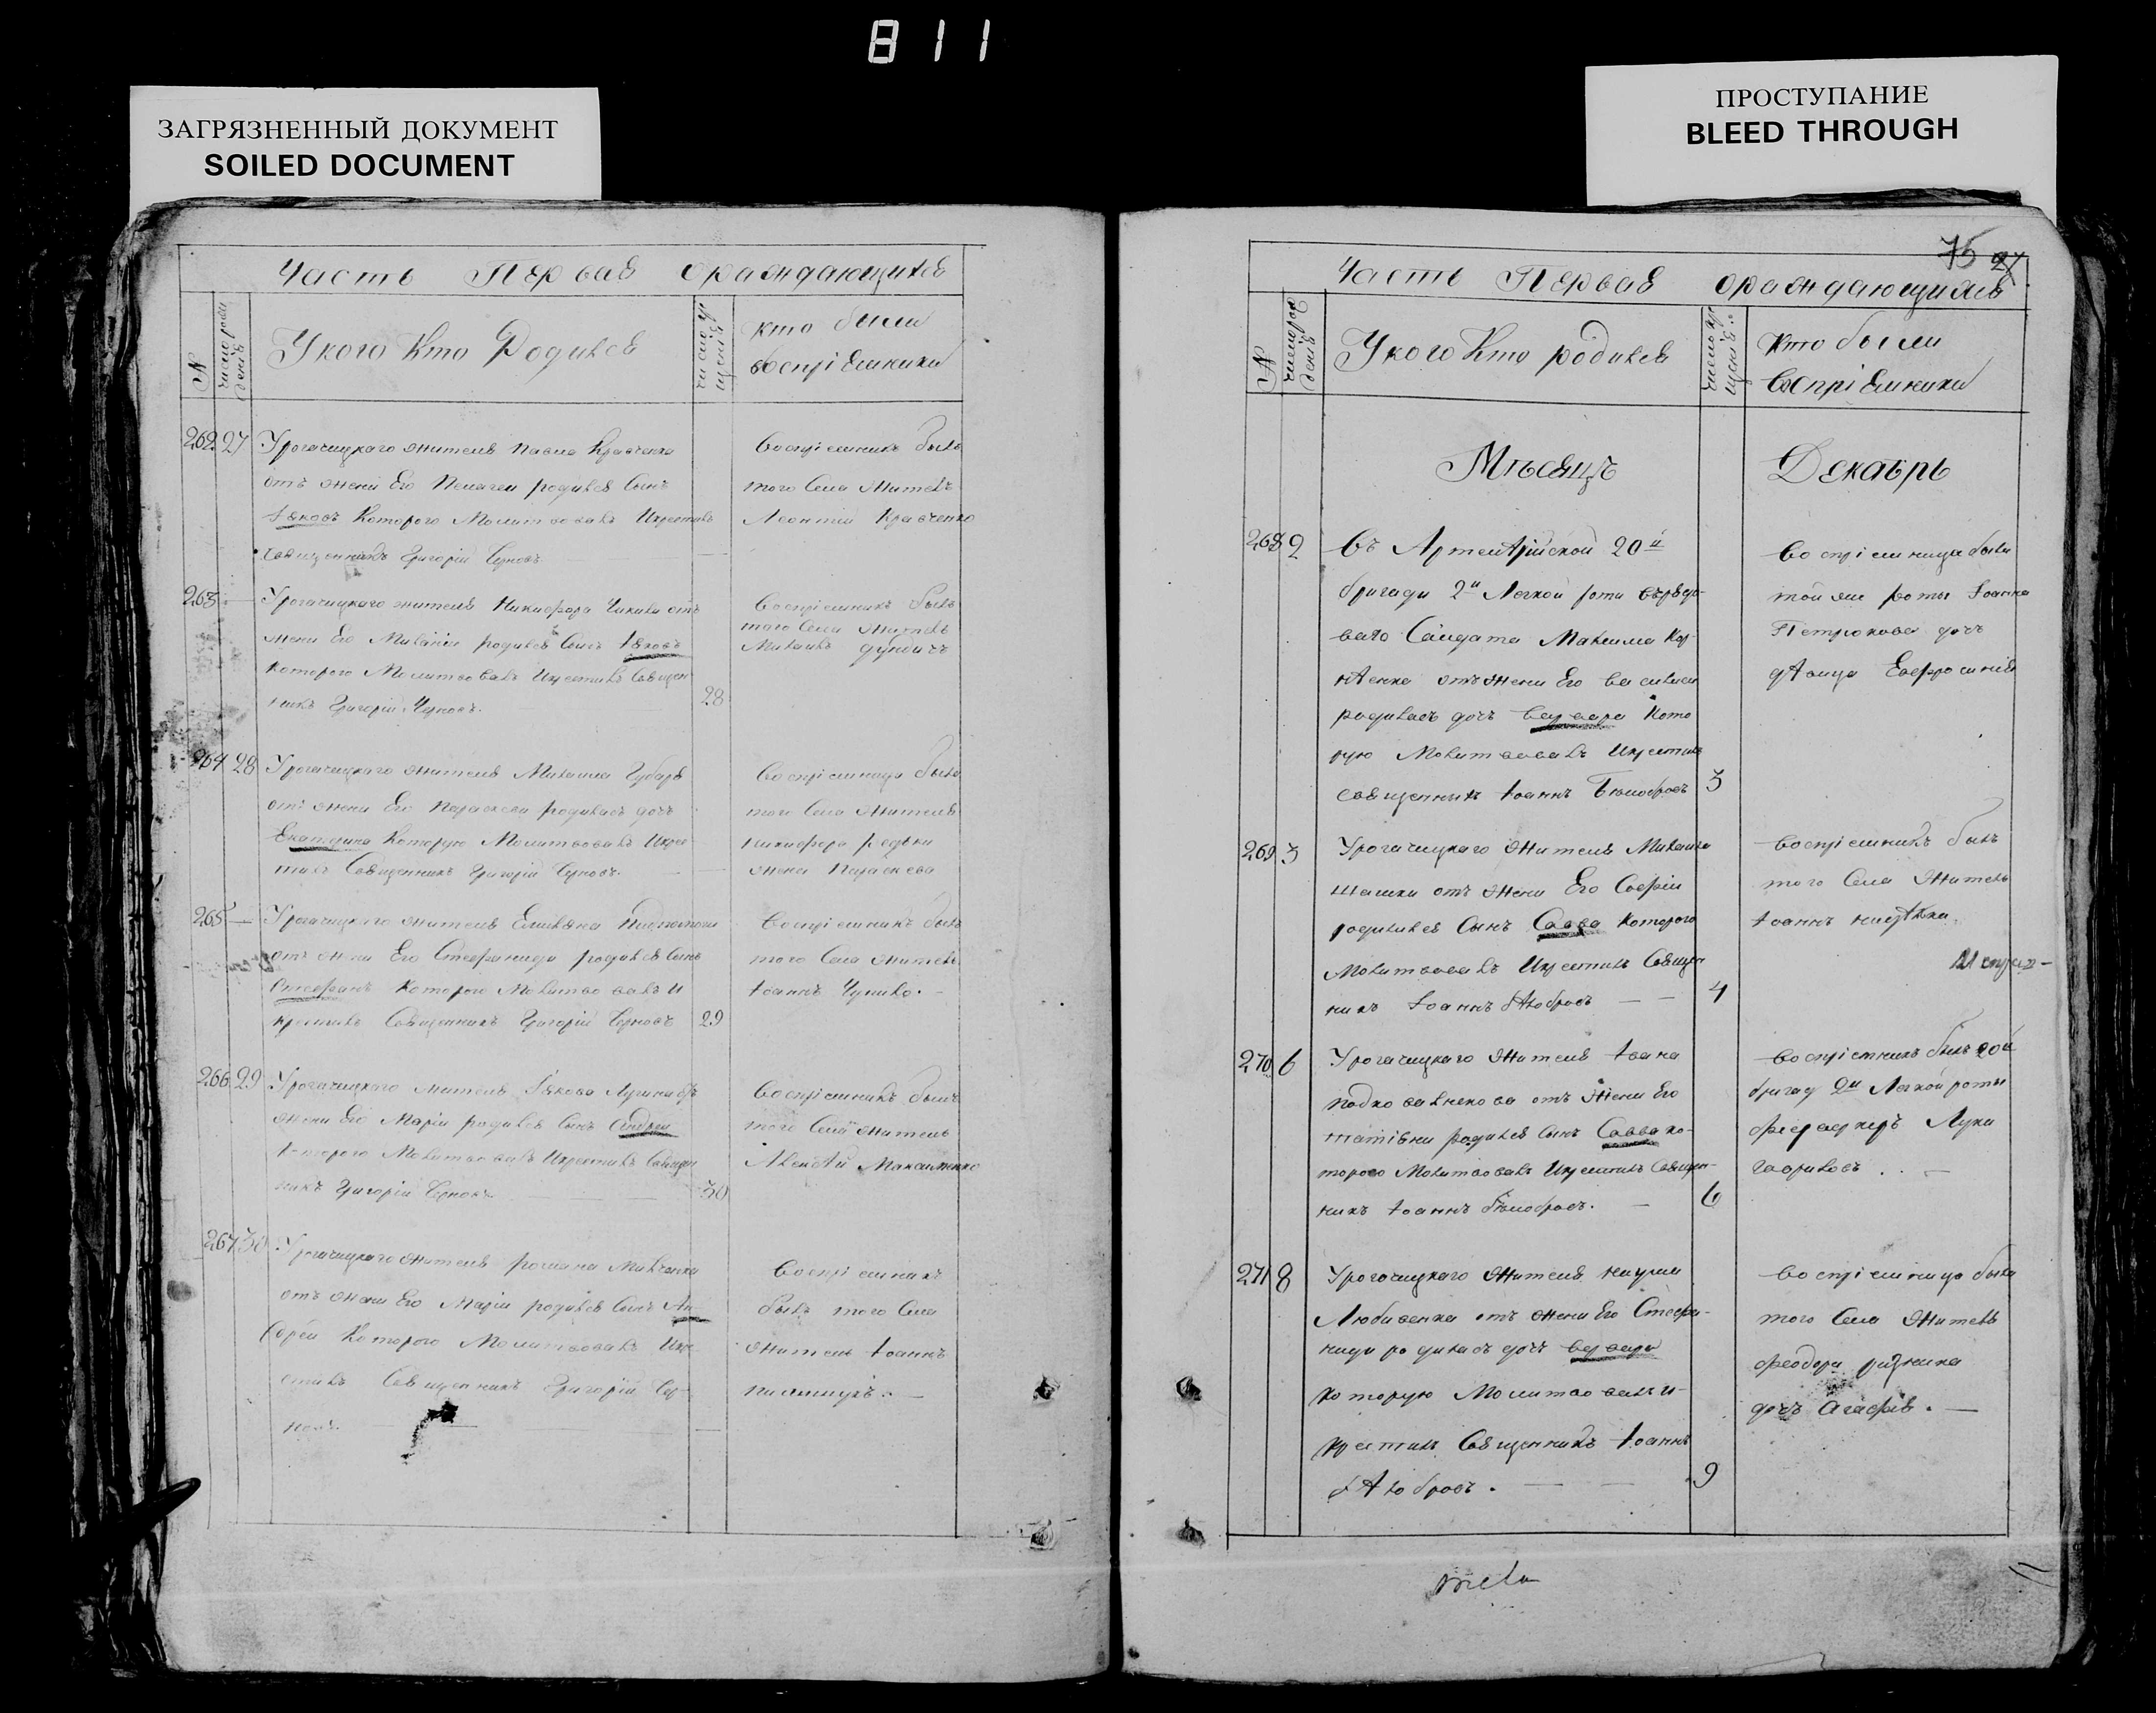 811
ЗАГРЯЗНЕННЫЙ ДОКУМЕНТ
SOILED DOCUMENT
ПРОСТУПАНИЕ
BLEED THROUGH
Часть Первая ораждающихся
N
число рож
денія
У кого Кто Родился
число кр
щенія
кто были
воспріемники
262 27 Урогачицкаго жителя павла Кравченка
отъ жени Его Пелагеи родился Сынъ
Іяковъ Которого Молитвовалъ Икрестилъ
Священникъ Григорій Черновъ
Воспріемникъ былъ
того Села Житель
Леонтій Кравченко
263 — Урогачицкаго жителя Никифора отъ
жени Его родился Сынъ Іяковъ
которого Молитвовалъ Икрестилъ Священ
никъ Григорій Черновъ. 28
Воспріемникъ былъ
того Села Житель
Михаилъ
264 28 Урогачицкаго жителя Михаила Губаря
отъ жени Его Параскеви родилась дочь
Екатерина Которую Молитвовалъ Икрес
тилъ Священникъ Григорій Черновъ. —
Воспріемница была
того Села Жителя
никифора редьки
жена Параскева
265 — Урогачицкаго жителя Емилѣяна
отъ жени Его Стефаниди родился Сынъ
Стефанъ Которого Молитвовалъ И
крестилъ Священникъ Григорій Черновъ 29
Воспріемникъ былъ
того Села Житель
Іоаннъ
266 29 Урогачицкаго жителя Іякова отъ
жени Его Маріи родился Сынъ Андрей
Которого Молитвовалъ Икрестилъ Священ
никъ Григорій Черновъ 30
Воспріемникъ былъ
того Села Житель
Алексѣй Максименко
267 30 Урогачицкаго Жителя романа
отъ жени Его Маріи родился Сынъ Ан
дрей Которого Молитвовалъ Икре
стилъ Священникъ Григорій Чер-
новъ.
Воспріемникъ
былъ того Села
Житель Іоаннъ
75 27
Часть Первая ораждающихся
N
число рож
денія
У кого Кто родился
число кр
щенія
Кто были
воспріемники
Мѣсяцъ Декабрь
268 2 Въ Артелѣрійской 20й
бригади 2й Легкой роти
Салдата Максима
отъ жени Его Василиси
родилась дочь варвара Кото
рую Молитвовалъ Икрестилъ
священникъ Іоаннъ Бѣлобровъ 3
Воспріемница была
той же роты Іоанна
Петрюкова дочь
дѣвица Евфросинія
269 3 Урогачицкаго Жителя Михаила
шашки отъ жени Его Софіи
родился Сынъ Савва Которого
Молитвовалъ Икрестилъ Священ
никъ Іоаннъ бѣлобровъ — — 4
Воспріемникъ былъ
того Села Житель
Іоаннъ
270 6 Урогачицкаго Жителя Іоана
отъ Жени Его
родился Сынъ Савва ко-
торого Молитвовалъ Икрестилъ Священ-
никъ Іоаннъ бѣлобровъ. — 6
Воспріемникъ былъ 20й
бригад 2й Легкой роты
феерверкеръ Лука
гавриловъ . . —
271 8 Урогачицкаго Жителя наума
Любивенка отъ жени Его Стефа-
ниди родилась дочь варвара
Которую Молитвовалъ И-
крестилъ Священникъ Іоаннъ
бѣлобровъ. — — 9
Воспріемница была
того Села Жителя
феодора
дочь Агафія. —